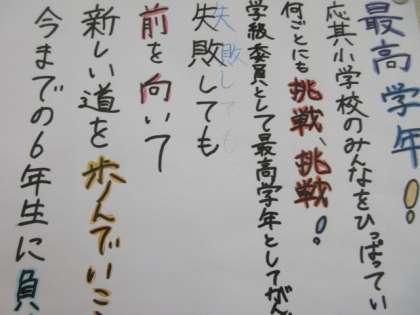 最高学年!!
応其小学校のみんなをひっぱってい
何ごとにも挑戦、挑戦!!
学級委員として最高学年としてがん
失敗しても
失敗しても
前を向いて
新しい道を歩んでいこ
今までの6年生に負